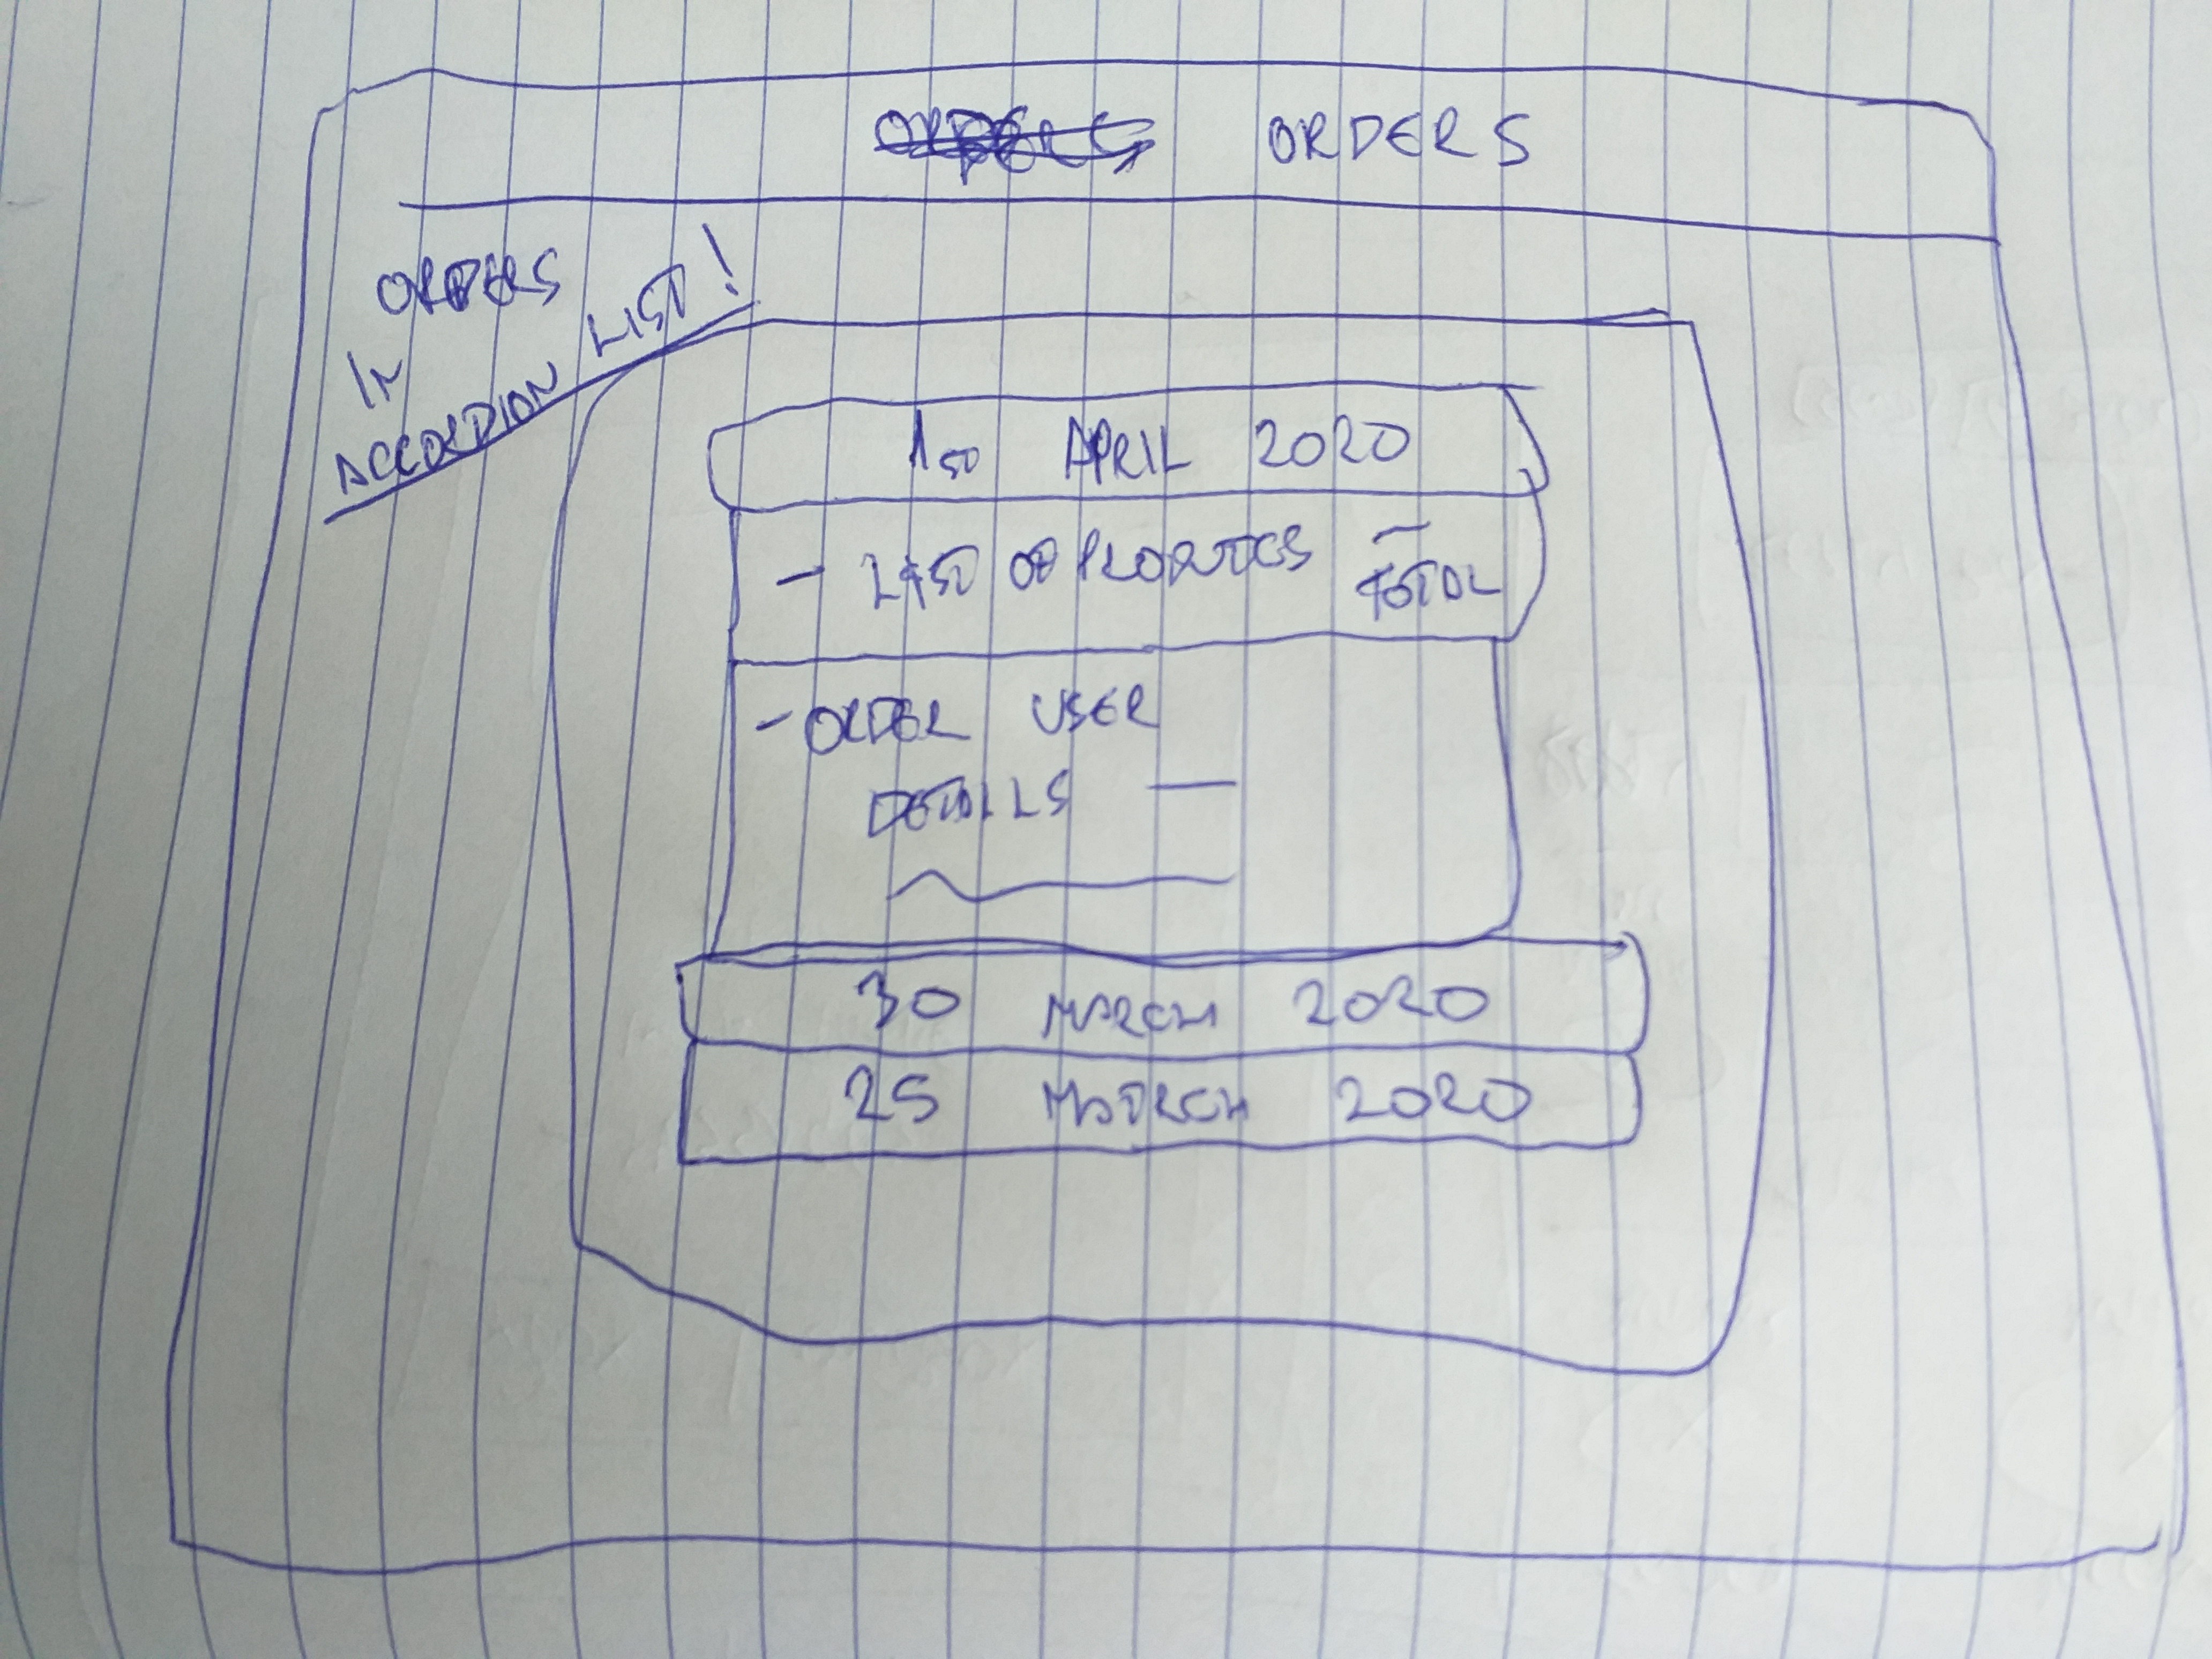 ORDERS
ORDERS
IN
ACCORDION LIST!
1st APRIL 2020
- LIST OF PRODUCTS - TOTAL
- ORDER USER
DETAILS
30 MARCH 2020
25 MARCH 2020